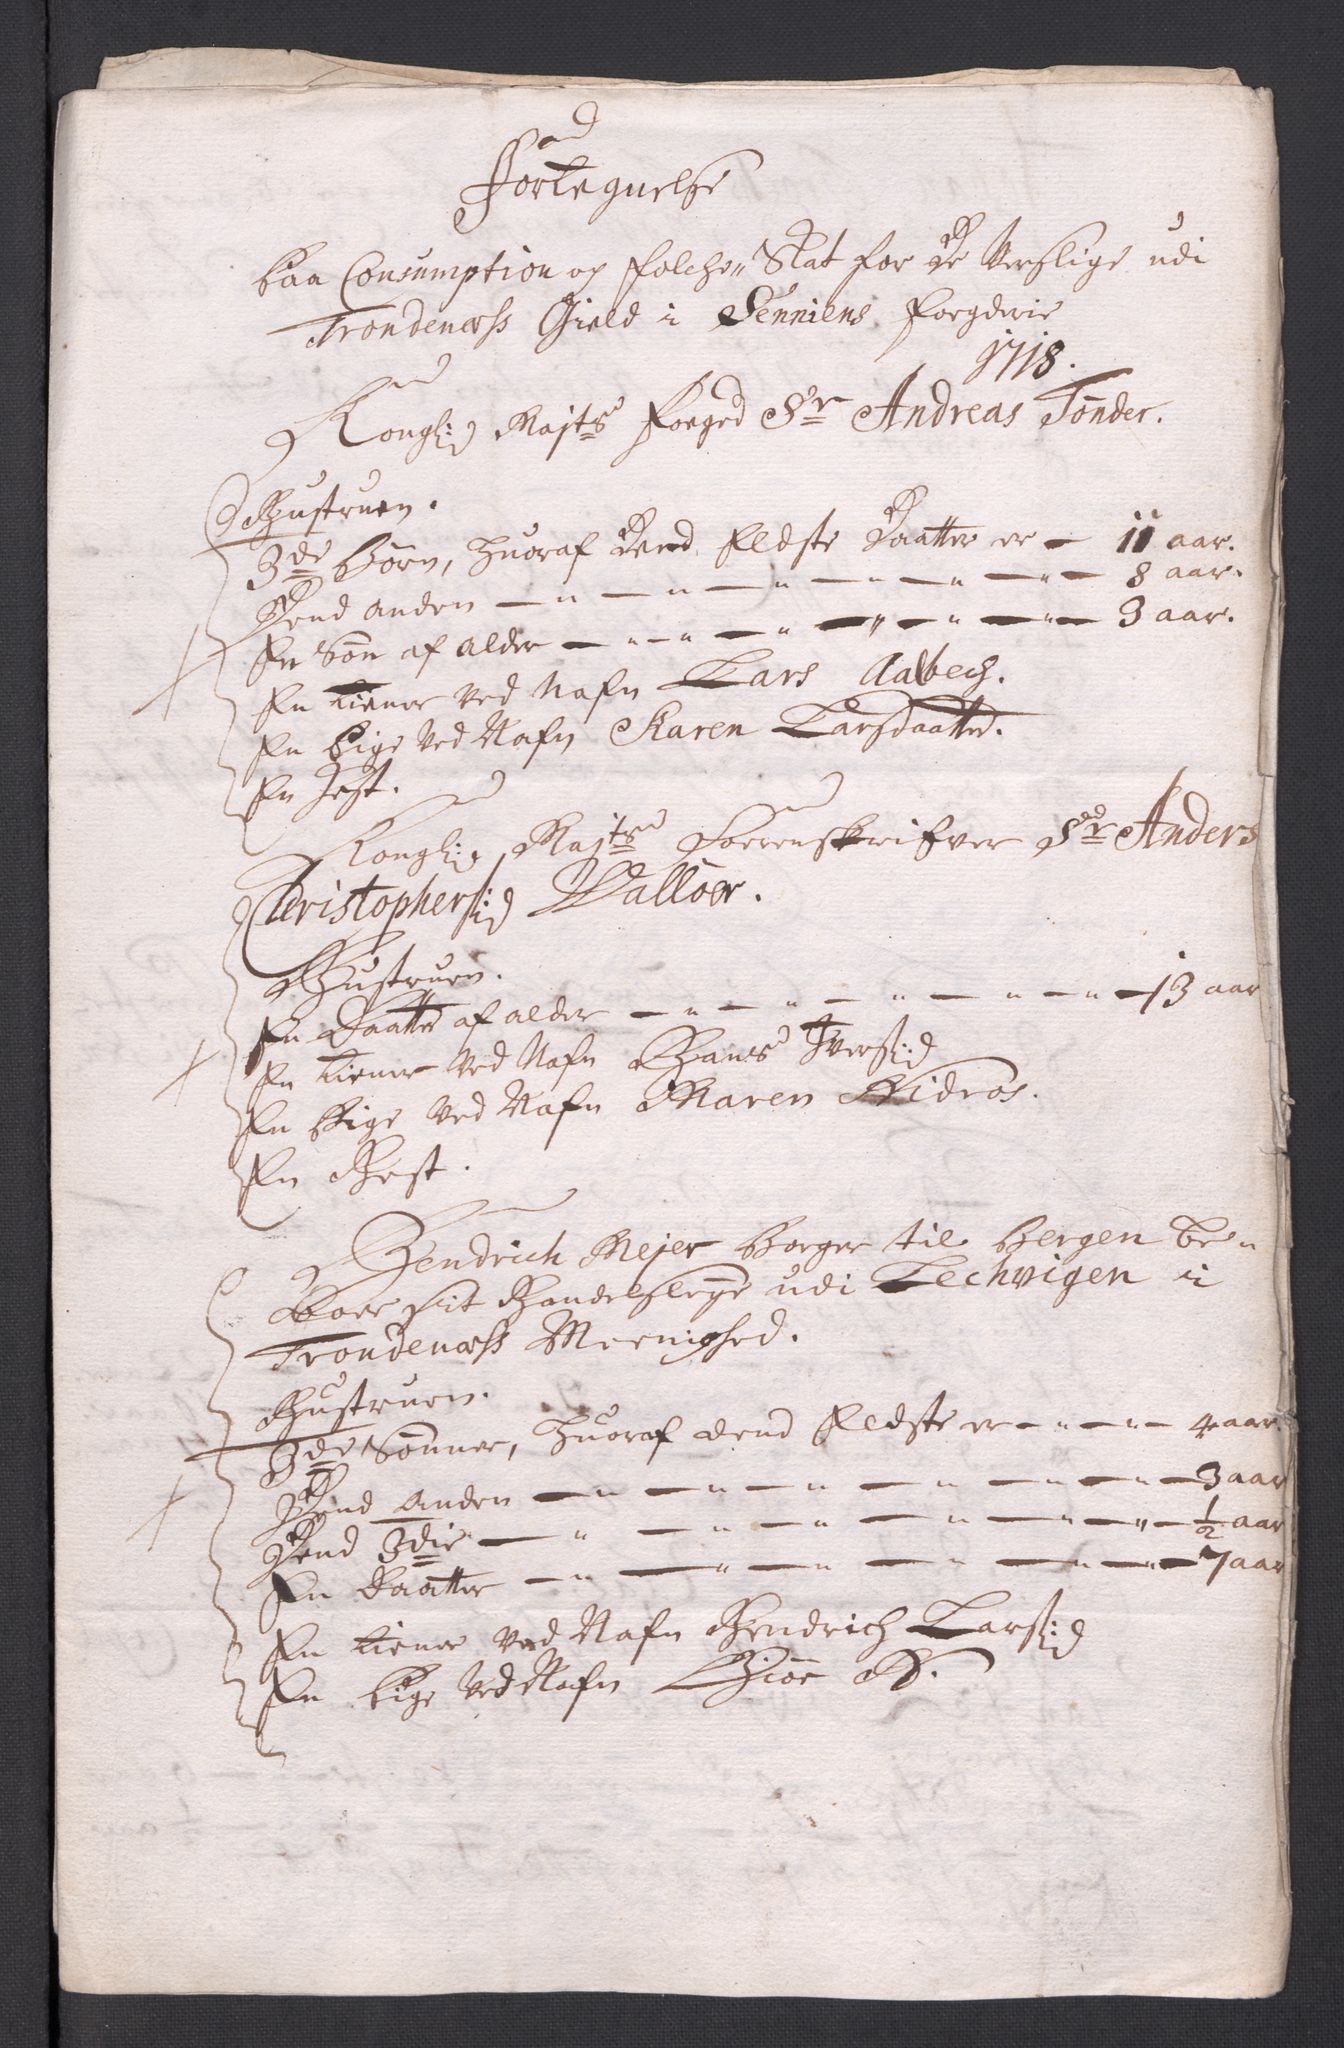 Fortegnelse
Paa Consumption og Folche- Skat for De Verslige udi
Trondenæss Gield i Senniens Foegderie
1718.
Kongl: Majts Foeged Sr Andreas Tönder.
Hustruen.
3de Börn, huoraf Dend Eldste Daatter er — 11 aar.
Dend anden — " — " — " — " — " — " — 8 aar.
En Sön af alder — " — " — " — " — " — " — 3 aar.
En tiener ved Nafn Lars Aabech.
En Pige ved Nafn Karen Larsdaatter.
En Hest.
Kongl: Majts Soerenskrifver Sr Anders
Christophers: Dalloër.
Hustruen.
En Daatter af alder — " — " — " — " — " — 13 aar
En tiener ved Nafn Hans Iversn:
En Pige ved Nafn Maren Nidros.
En Hest.
Hendrich Mejer Borger til Bergen Be-
boer sit Handelsleye udi Lechvigen i
Trondenæss Meenighed.
Hustruen.
3de Sönner, huoraf dend Eldste er — " — " — 4 aar.
Dend Anden — " — " — " — " — " — " — 3 aar
Dend 3die — " — " — " — " — " — " — 1/2 aar
En Daatter — " — " — " — " — " — " — 7 aar
En tiener ved Nafn Hendrich Larsn:
En Pige ved Nafn